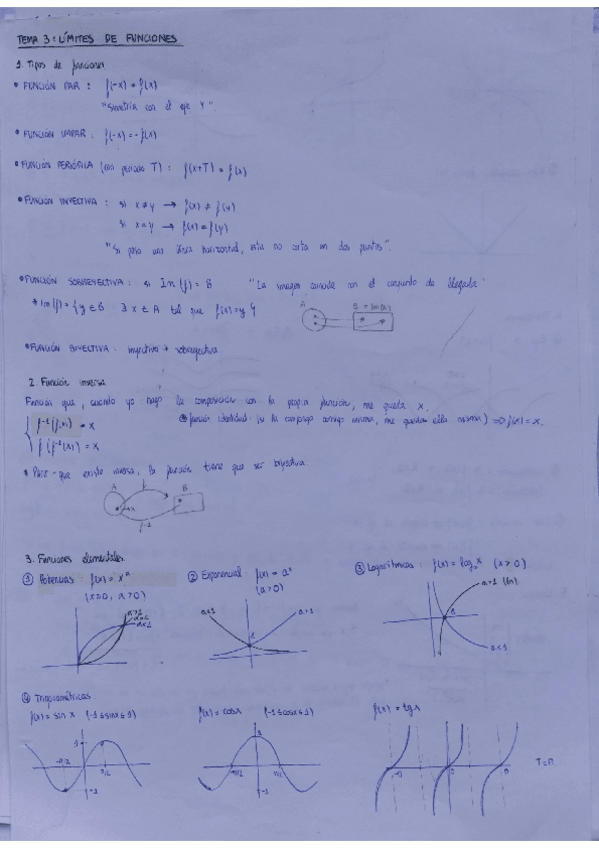 TEMA 3: LÍMITES DE FUNCIONES
1. Tipos de funciones
• FUNCIÓN PAR : f(-x) = f(x)
"Simetría con el eje Y".
• FUNCIÓN IMPAR : f(-x) = -f(x)
• FUNCIÓN PERIÓDICA (con periodo T) : f(x+T) = f(x)
• FUNCIÓN INYECTIVA : si x ≠ y → f(x) ≠ f(y)
si x = y → f(x) = f(y)
"Si pasa una línea horizontal, esta no corta en dos puntos".
• FUNCIÓN SOBREYECTIVA : si Im(f) = B "La imagen coincide con el conjunto de llegada"
* Im(f) = {y ∈ B : ∃ x ∈ A tal que f(x) = y}
A B = Im(f)
• FUNCIÓN BIYECTIVA : inyectiva + sobreyectiva
2. Función inversa
Función que, cuando yo hago la composición con la propia función, me queda x.
f⁻¹(f(x)) = x
f(f⁻¹(x)) = x
función identidad: si la compongo consigo misma, me queda ella misma) => f(x) = x.
• Para que exista inversa, la función tiene que ser biyectiva.
A f B
x
f⁻¹
3. Funciones elementales
① Potencias f(x) = xᵃ ② Exponencial f(x) = aˣ ③ Logarítmicas : f(x) = logₐ x (x > 0)
(x ≥ 0, a > 0) (a > 0)
a>1 a=1 a<1
a<1 a>1 1
a>1 (ln) 1 a<1
④ Trigonométricas
f(x) = sin x (-1 ≤ sin x ≤ 1) f(x) = cos x (-1 ≤ cos x ≤ 1) f(x) = tg x
1 -π/2 π/2 -1
1 -π/2 π/2 -1
-π 0 π T = π